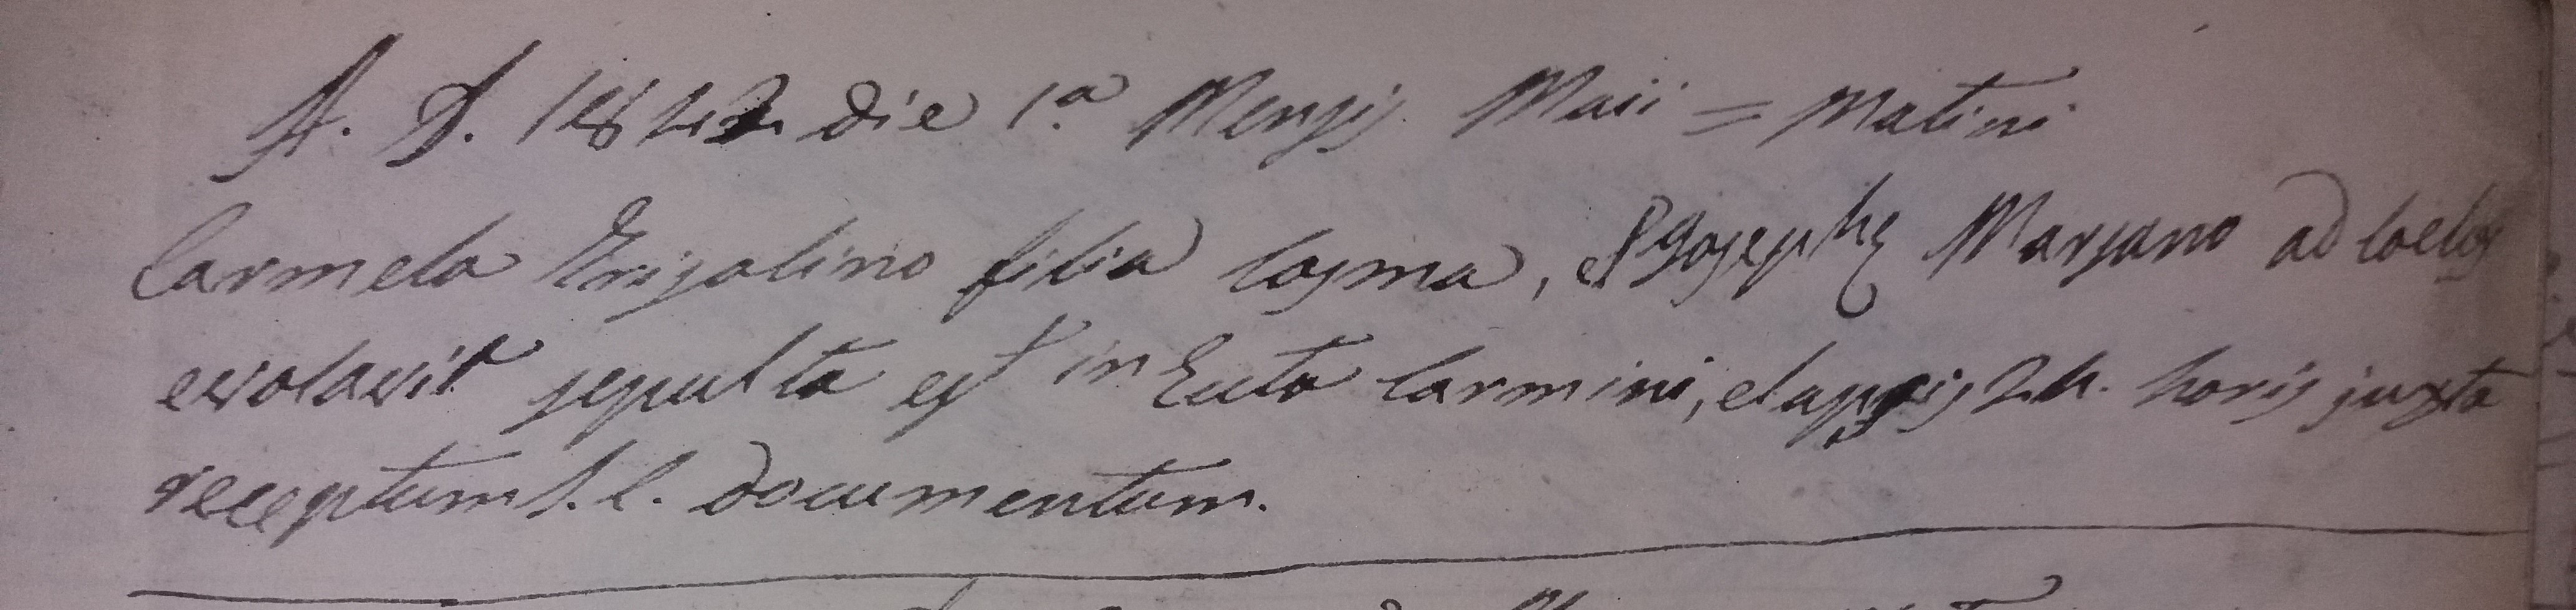 A. D. 1842 die 1.a Mensis Maii = Matini
Carmela Grisolino filia Cosma, et Josephe Marsano ad Coelos
evolavit sepulta est in Eccta Carmini, elapsis 24. horis juxta
receptum S. C. documentum.